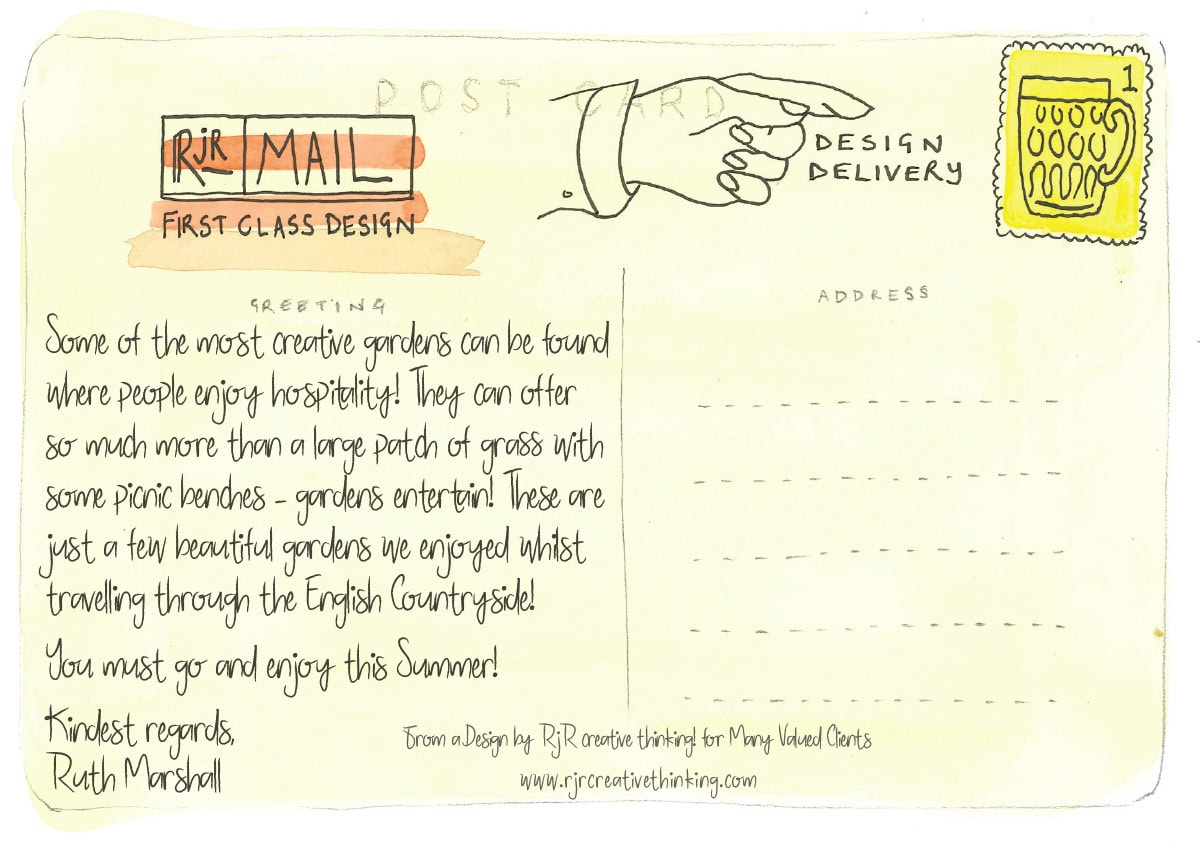 POST CARD
RJR MAIL
FIRST CLASS DESIGN
DESIGN
DELIVERY
1
GREETING
Some of the most creative gardens can be found
where people enjoy hospitality! They can offer
so much more than a large patch of grass with
some picnic benches - gardens entertain! These are
just a few beautiful gardens we enjoyed whilst
travelling through the English Countryside!
You must go and enjoy this Summer!
Kindest regards,
Ruth Marshall
ADDRESS
From a Design by RjR creative thinking! for Many Valued Clients
www.rjrcreativethinking.com